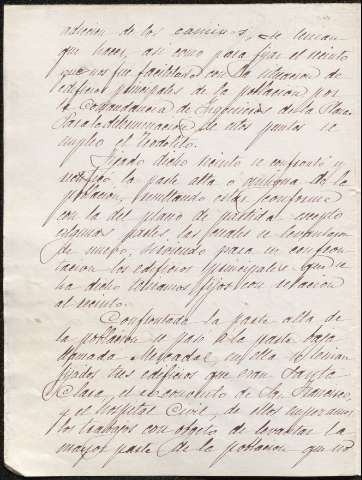 adicion de los caminos, se tenian
que hacer, asi como para fijar el recinto
que nos fue facilitado con la situacion de
edificios principales de la poblacion por
la Comandancia de Ingenieros de la Plaza
Para la determinacion de estos puntos se
empleó el Teodolito.
Fijado dicho recinto se confrontó y
rectificó la parte alta ó antigua de la
poblacion, resultando estar conforme
con la del plano de partida escepto
algunas partes las cuales se levantaron
de nuevo, sirviendo para su confron-
tacion los edificios principales que se
ha dicho teniamos fijos con relacion
al recinto.
Confrontada la parte alta de
la poblacion se pasó á la parte baja
llamada Mercadal, en ella se tenian
fijados tres edificios que eran Santa
Clara, el ex-convento de San Francisco
y el hospital Civil, de ellos empezamos
los trabajos con objeto de levantar la
mayor parte de la poblacion que no